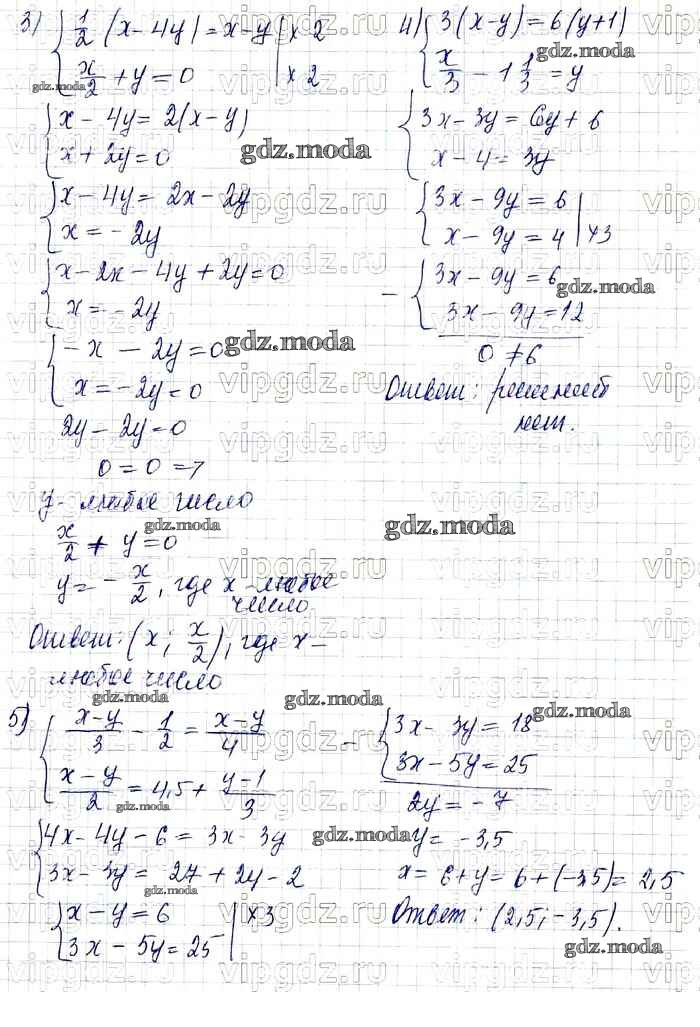 3) { 1/2 (x - 4y) = x - y | × 2
x/2 + y = 0 | × 2
{ x - 4y = 2(x - y)
x + 2y = 0
{ x - 4y = 2x - 2y
x = -2y
{ x - 2x - 4y + 2y = 0
x = -2y
{ -x - 2y = 0
x = -2y = 0
2y - 2y = 0
0 = 0 =>
y - любое число
x/2 + y = 0
y = - x/2, где x - любое
число
Ответ: (x; x/2), где x -
любое число
4) { 3(x - y) = 6(y + 1)
x/3 - 1 1/3 = y
{ 3x - 3y = 6y + 6
x - 4 = 3y
{ 3x - 9y = 6
x - 9y = 4 | ×3
- { 3x - 9y = 6
3x - 9y = 12
0 ≠ 6
Ответ: решений
нет.
5) { (x - y)/3 - 1/2 = (x - y)/4
(x - y)/2 = 4,5 + (y - 1)/3
{ 4x - 4y - 6 = 3x - 3y
3x - 3y = 27 + 2y - 2
{ x - y = 6 | ×3
3x - 5y = 25
- { 3x - 3y = 18
3x - 5y = 25
2y = -7
y = -3,5
x = 6 + y = 6 + (-3,5) = 2,5
Ответ: (2,5; -3,5).
gdz.moda
vipgdz.ru